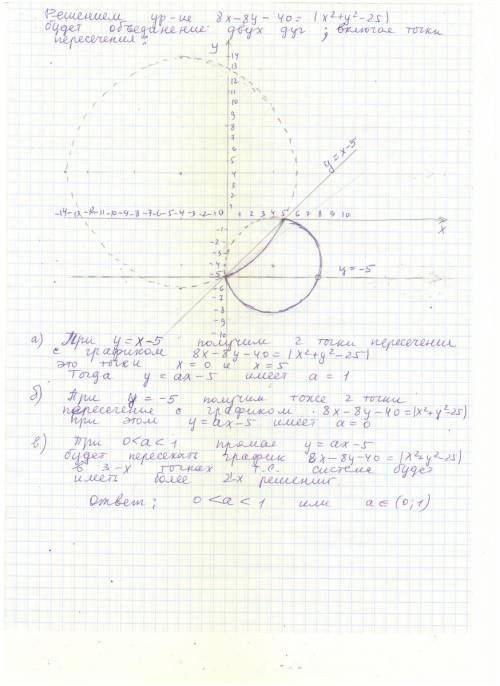 Решением ур-ие 8x-8y-40=|x²+y²-25|
будет объеданение двух дуг; включае точки
пересечения:
y
14
13
12
11
10
9
8
7
6
5
4
3
2
1
y=x-5
-14 -13 -12 -11 -10 -9 -8 -7 -6 -5 -4 -3 -2 -1 0 1 2 3 4 5 6 7 8 9 10
x
-1
-2
-3
-4
-5
-6
-7
-8
-9
-10
y=-5
а) При y=x-5 получим 2 точки пересечении
с графиком 8x-8y-40=|x²+y²-25|
это точки x=0 и x=5
Тогда y=ax-5 имеет a=1
б) При y=-5 получим тоже 2 точки
пересечение с графиком 8x-8y-40=|x²+y²-25|
При этом y=ax-5 имеет a=0
в) При 0<a<1 прямая y=ax-5
будет пересекать график 8x-8y-40=|x²+y²-25|
в 3-х точках т.е. система будет
иметь более 2-х решений.
Ответ: 0<a<1 или a∈(0;1)